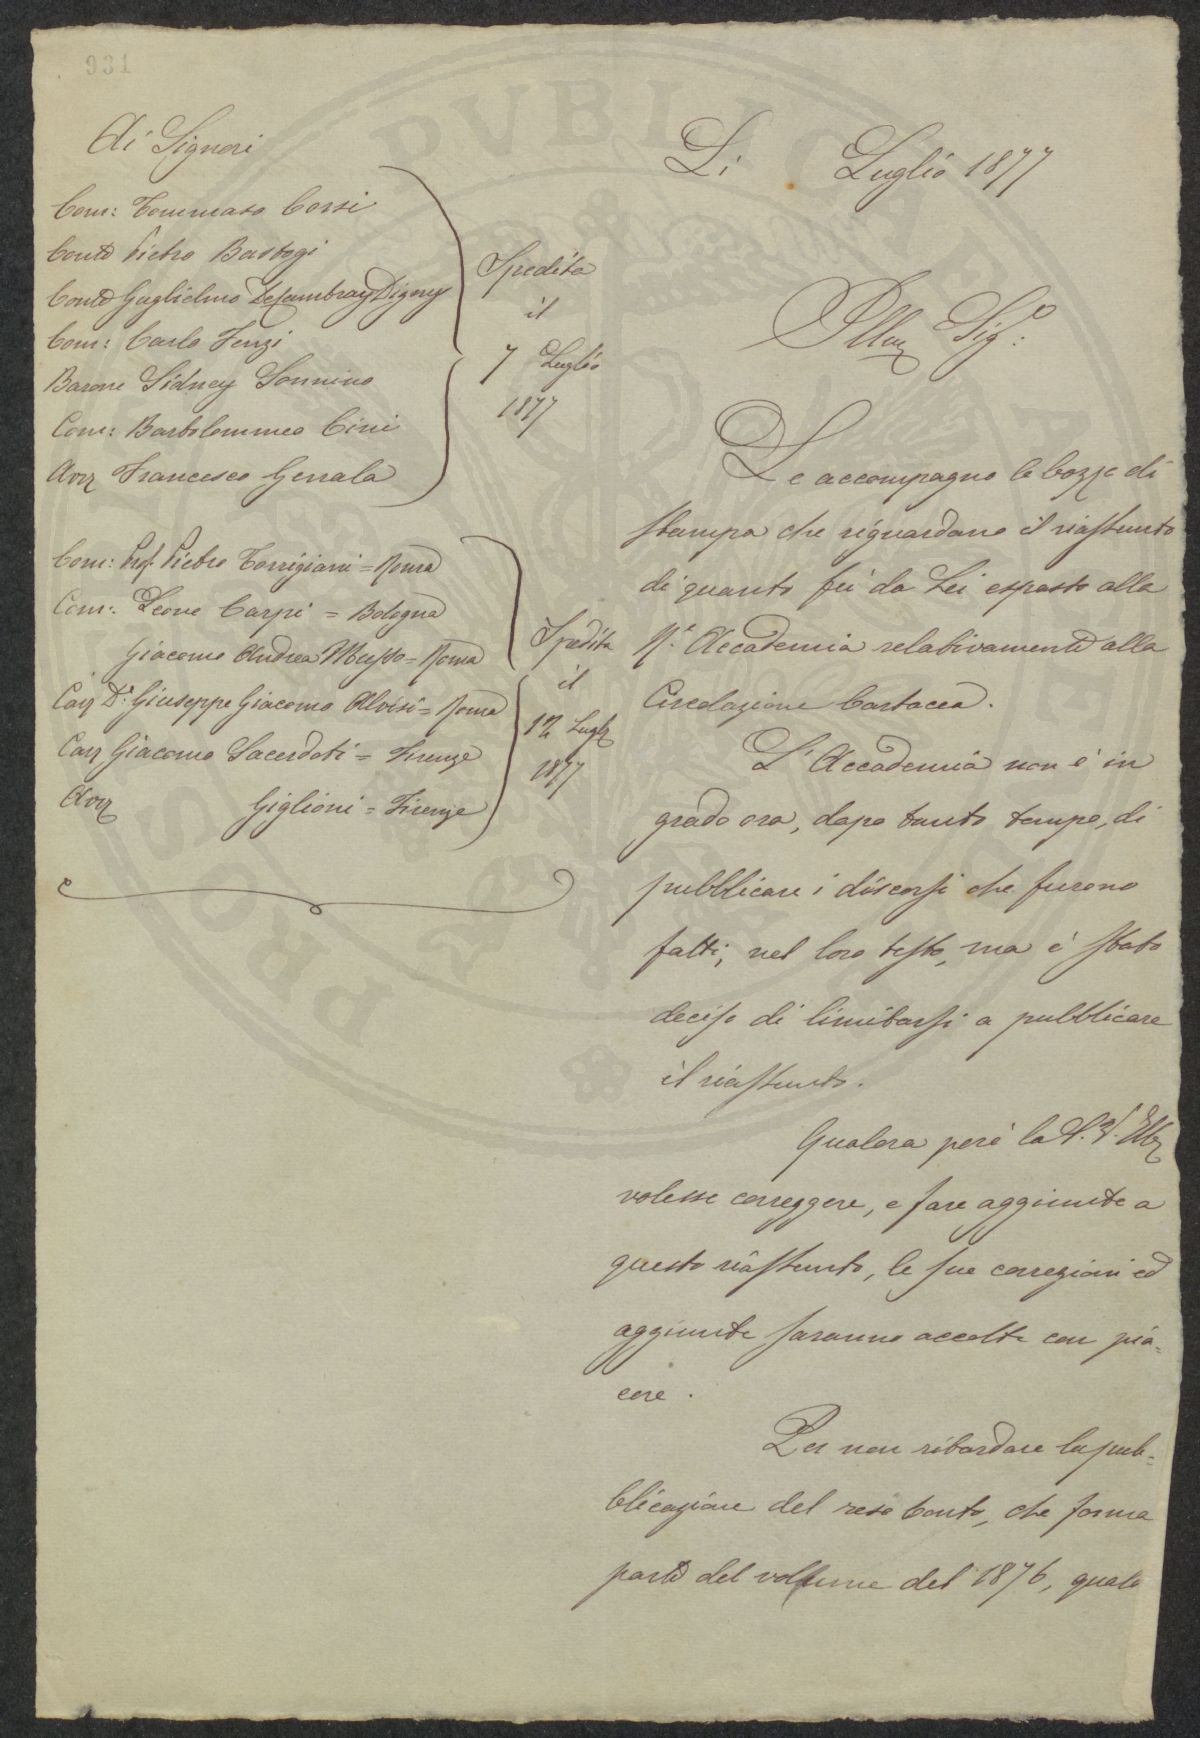 931
Ai Signori
Com: Tommaso Corsi
Conte Pietro Bastogi
Conte Guglielmo De Cambray Digny
Com: Carlo Fenzi
Barone Sidney Sonnino
Com: Bartolommeo Cini
Avv Francesco Genala
Spedita
il
7 Luglio
1877
Com: Prof. Pietro Torrigiani = Roma
Com: Leone Carpi = Bologna
Giacomo Andrea Musso = Roma
Cav Dr. Giuseppe Giacomo Alvisi = Roma
Cav Giacomo Sacerdoti = Firenze
Avv Giglioni = Firenze
Spedita
il
12 Lugl
1877
Li Luglio 1877
Illm Sigo:
Le accompagno le bozze di
stampa che riguardano il riassunto
di quanto fu da Lei esposto alla
R. Accademia relativamente alla
Circolazione Cartacea.
L'Accademia non è in
grado ora, dopo tanto tempo, di
pubblicare i discorsi che furono
fatti, nel loro testo, ma è stato
deciso di limitarsi a pubblicare
il riassunto.
Qualora però la S. V. Ill
volesse correggere, e fare aggiunte a
questo riassunto, le sue correzioni ed
aggiunte saranno accolte con pia=
cere.
Per non ritardare la pub=
blicazione del reso conto, che forma
parte del volume del 1876, quale
PVBLICA